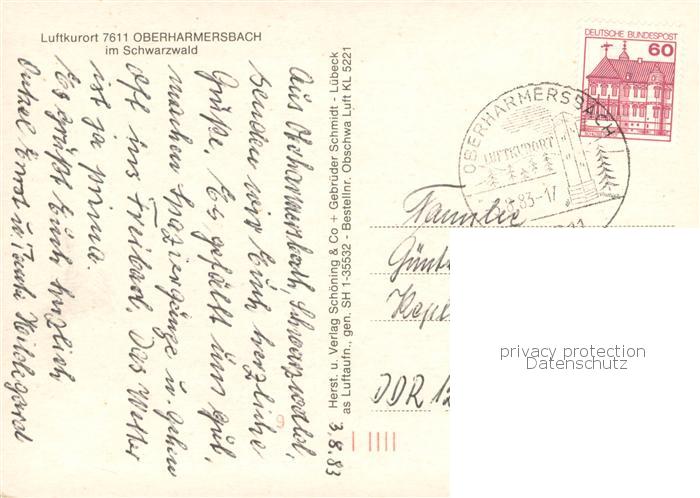 Luftkurort 7611 OBERHARMERSBACH
im Schwarzwald
3.8.83
Aus Oberharmersbach, Schwarzwald,
senden wir Euch herzliche
Grüße. Es gefällt uns gut,
machen Spaziergänge u. gehen
oft ins Freibad. Das Wetter
ist ja prima.
Es grüßt Euch herzlich
Onkel Ernst u. Tante Hildegard
Herst. u. Verlag Schöning & Co + Gebrüder Schmidt - Lübeck
as Luftaufn., gen. SH 1-35532 - Bestellnr. Obschwa Luft KL 5221
DEUTSCHE BUNDESPOST
60
OBERHARMERSBACH
LUFTKURORT
8.83-17
Familie
Günt
Kepl
DDR 12
9
privacy protection
Datenschutz